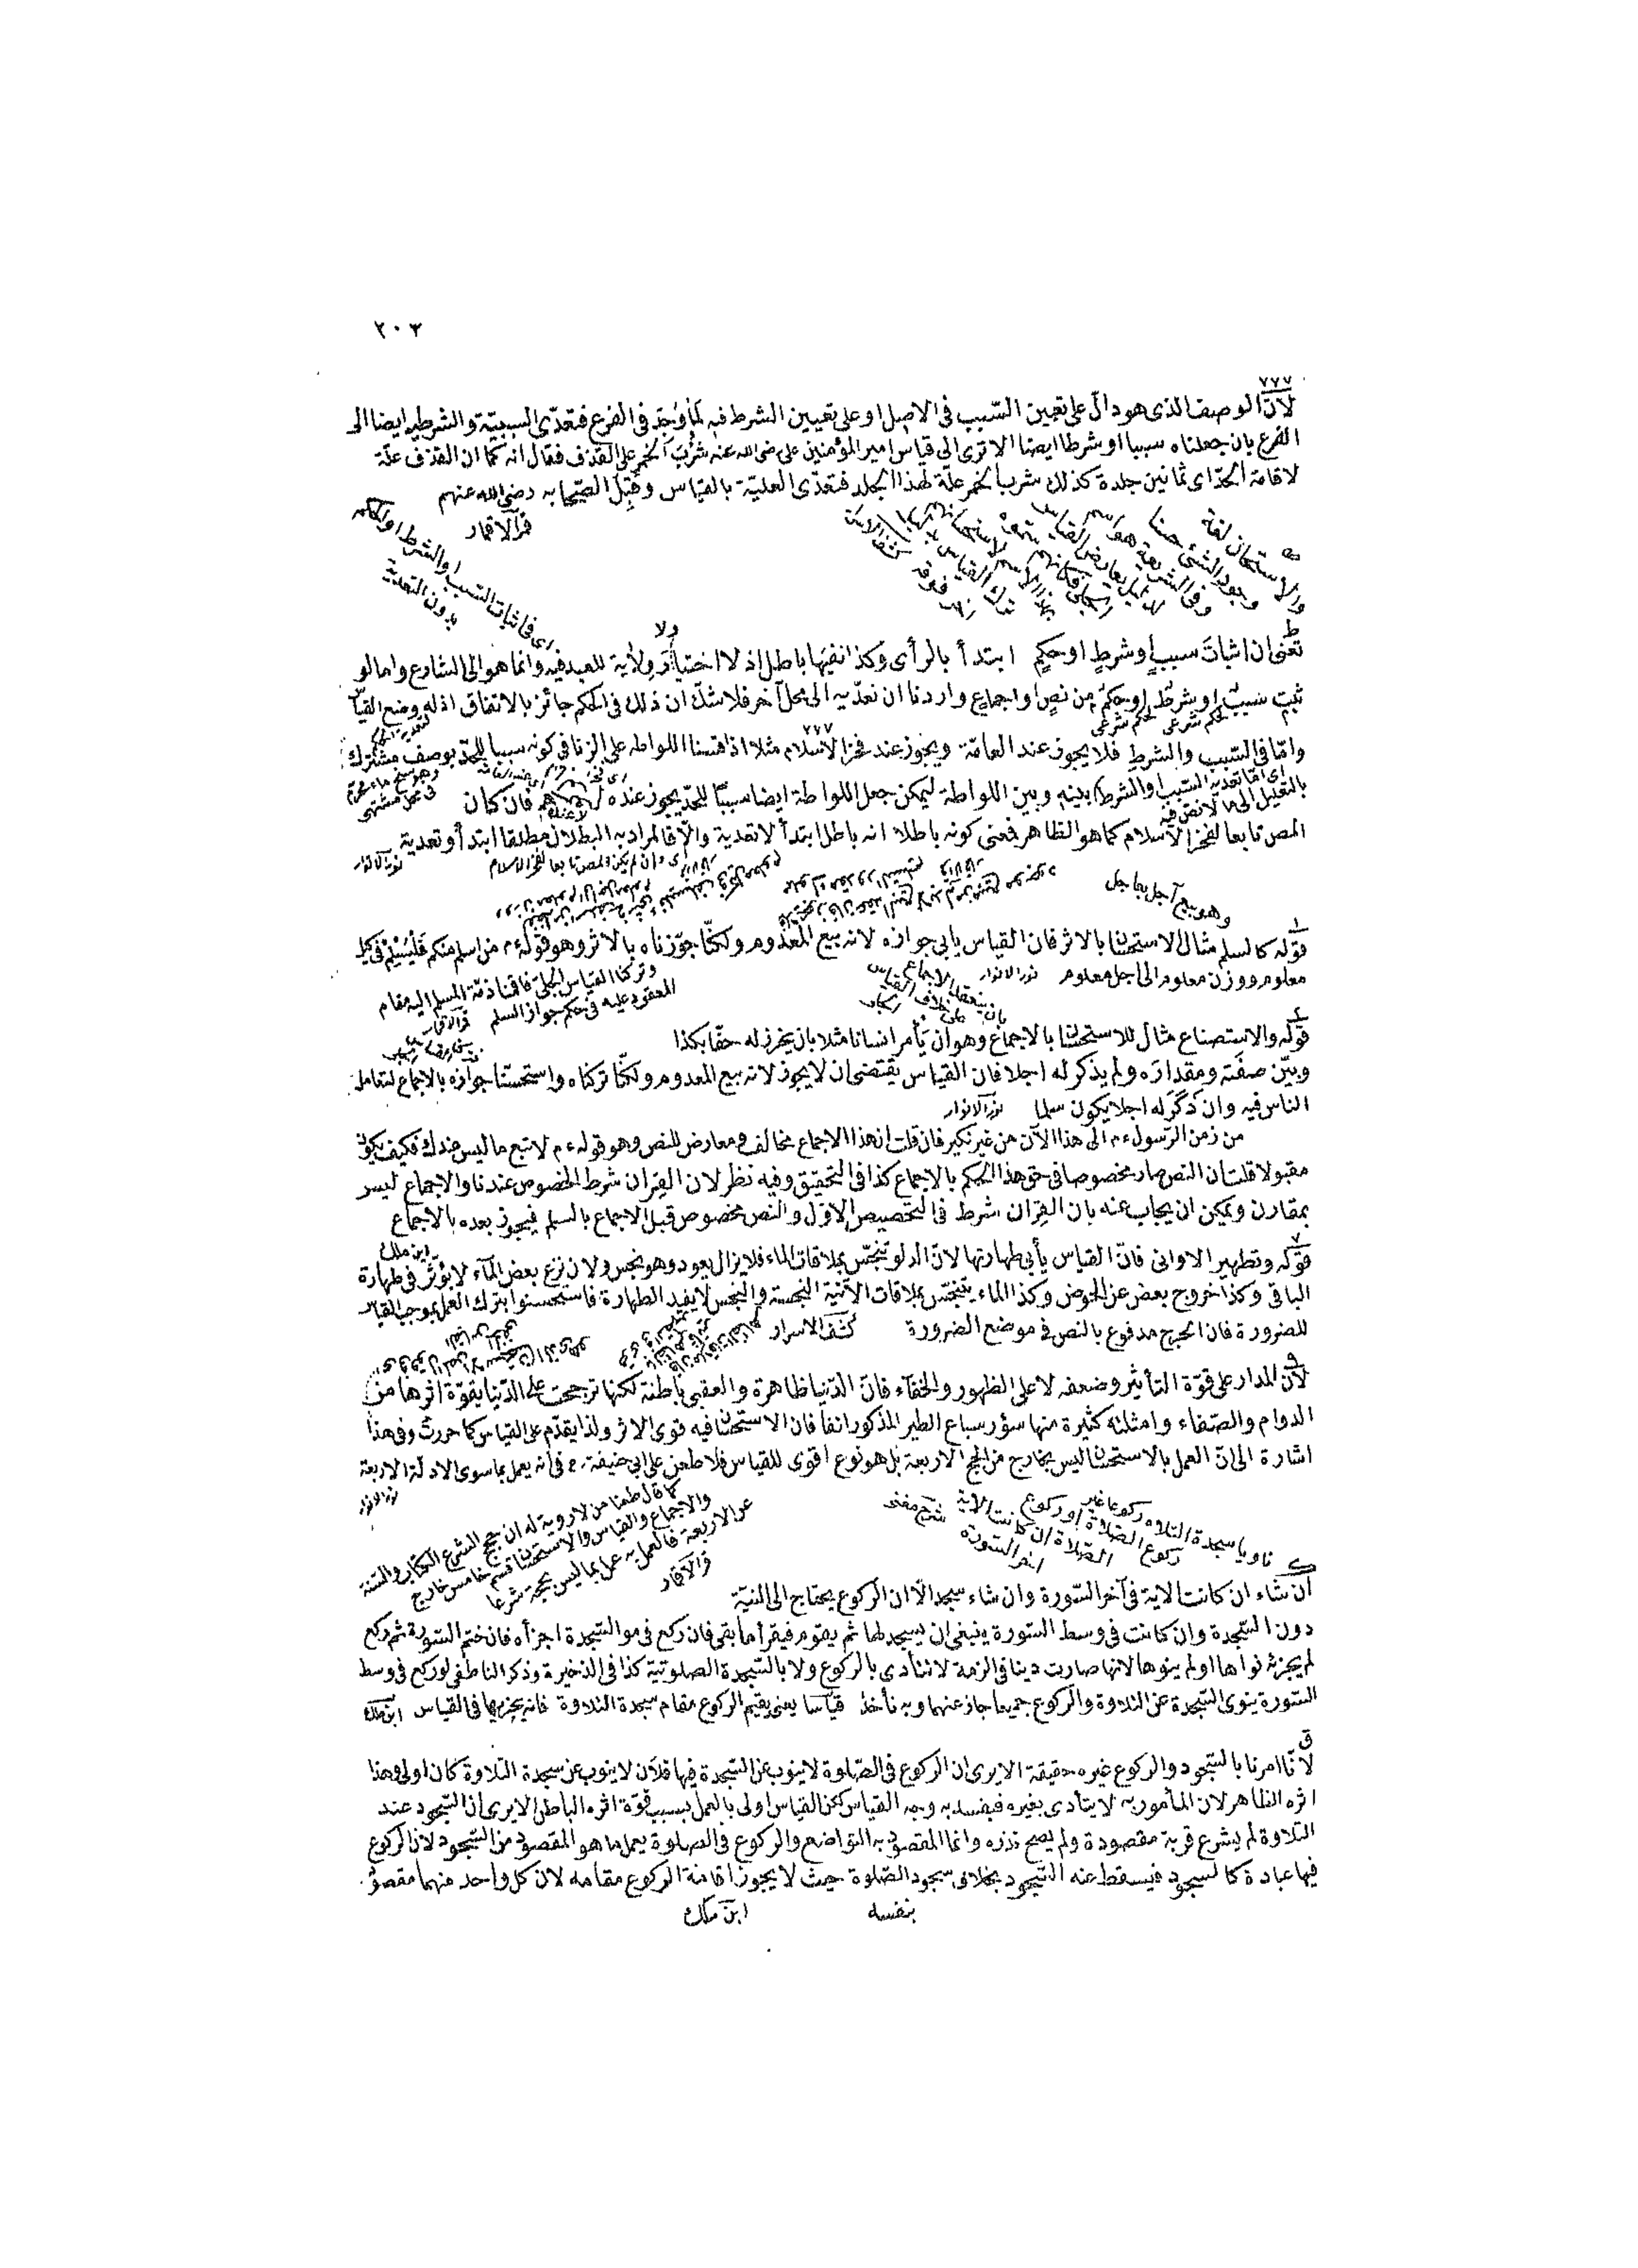 ٢٠٣
٧٧٧
لان الوصف الذى هو دال على تعيين السبب فى الاصل او على تعيين الشرط فيه لما وجد فى الفرع فتعدى السببية والشرطية ايضا الى
الفرع بان جعلناه سببا او شرطا ايضا الا ترى الى قياس امير المؤمنين على رضى الله عنه شرب الخمر على القذف فقال انه كما ان القذف علة
لاقامة الحد اى ثمانين جلدة كذلك شرب الخمر علة لهذا الجلد فتعدى العلية بالقياس وقبل الصحابه رضى الله عنهم
قمر الاقمار
اى فى اثبات السبب والشرط او الحكم
بدون التعدية
والاستحسان لغة
وجود الشئ حسنا
وفى الشريعة هو اسم
كشف الاسرار
ط
يعنى ان اثبات سبب او شرط او حكم ابتدأ بالرأى وكذا نفيها باطل اذ لا اختيار ولاية للعبد فيه وانما هو الى الشارع واما لو
ولا
ثبت سبب او شرط او حكم من نص او اجماع واردنا ان نعديه الى محل آخر فلا شك ان ذلك فى الحكم جائز بالاتفاق اذ له وضع القياس
لحكم شرعى لحكم شرعى
٧٧٧
واما فى السبب والشرط فلا يجوز عند العامة ويجوز عند فخر الاسلام مثلا اذا قسنا اللواطه على الزنا فى كونه سببا للحد بوصف مشترك
اى اما تعدية السبب والشرط
بالتعليل الى ما لا نص فيه
وهو سفح ماء محرم
فى محل مشتهى
بينه وبين اللواطة ليمكن جعل اللواطة ايضا سببا للحد يجوز عنده لا عندهم فان كان
المص تابعا لفخر الاسلام كما هو الظاهر فمعنى كونه باطلا انه باطل ابتدأ لا تعدية والا فالمراد به البطلان مطلقا ابتدأ وتعدية
نور الانوار
اى وان لم يكن المص تابعا لفخر الاسلام
وهو بيع آجل بعاجل
قوله كالسلم مثال الاستحسان بالاثر فان القياس يابى جوازه لانه بيع المعدوم ولكنا جوزناه بالاثر وهو قوله ءم من اسلم منكم فليسلم فى كيل
معلوم ووزن معلوم الى اجل معلوم نور الانوار
وتركنا القياس الجلى فاقمنا ذمة المسلم اليه مقام
المعقود عليه فى حكم جواز السلم قمر الاقمار
بان ينعقد الاجماع
على خلاف القياس
قوله والاستصناع مثال للاستحسان بالاجماع وهو ان يأمر انسانا مثلا بان يخرز له خفا بكذا
وبين صفته ومقداره ولم يذكر له اجلا فان القياس يقتضى ان لا يجوز لانه بيع المعدوم ولكنا تركناه واستحسنا جوازه بالاجماع لتعامل
الناس فيه وان ذكر له اجلا يكون سلما نور الانوار
من زمن الرسول ءم الى هذا الآن من غير نكير فان قلت ان هذا الاجماع مخالف ومعارض للنص وهو قوله ءم لا تبع ما ليس عندك فكيف يكون
مقبولا قلت ان النص صار مخصوصا فى حق هذا الحكم بالاجماع كذا فى التحقيق وفيه نظر لان القران شرط الخصوص عندنا والاجماع ليس
بمقارن ويمكن ان يجاب عنه بان القران شرط فى التخصيص الاول والنص مخصوص قبل الاجماع بالسلم فيجوز بعده بالاجماع
ابن ملك
٧
قوله وتطهير الاوانى فان القياس يأبى طهارتها لان الدلو تنجس بملاقات الماء فلا يزال يعود وهو نجس ولان نزع بعض المآء لا يؤثر فى طهارة
الباقى وكذا خروج بعض عن الحوض وكذا الماء يتنجس بملاقات الآنية النجسة والنجس لا يفيد الطهارة فاستحسنوا بترك العمل بموجب القياس
للضرورة فان الحرج مدفوع بالنص فى موضع الضرورة كشف الاسرار
٩
لان المدار على قوة التأثير وضعفه لا على الظهور والخفآء فان الدنيا ظاهرة والعقبى باطنة لكنها ترجحت على الدنيا بقوة اثرها من
الدوام والصفاء وامثلته كثيرة منها سؤر سباع الطير المذكور انفا فان الاستحسان فيه قوى الاثر ولذا يقدم على القياس كما حررت وفى هذا
اشارة الى ان العمل بالاستحسان ليس بخارج من الحجج الاربعة بل هو نوع اقوى للقياس فلا طعن على ابى حنيفة رح فى انه يعمل بما سوى الادلة الاربعة
نور الانوار
كما قال طعنا من لا روية له ان حجج الشرع الكتاب والسنة
والاجماع والقياس والاستحسان قسم خامس خارج
عن الاربعة فالعمل به عمل بما ليس بحجة شرعا
قمر الاقمار
ناويا سجدة التلاوه ركوعا غير
ركوع الصلاة او ركوع
الصلاة ان كانت الاية
اخر السورة
ى
ان شاء ان كانت الاية فى آخر السورة وان شاء سجد الا ان الركوع يحتاج الى النية
دون السجدة وان كانت فى وسط السورة ينبغى ان يسجد لها ثم يقوم فيقرأ ما بقى فان ركع فى مو السجدة اجزأه فان ختم السورة ثم ركع
لم يجزئه نواها او لم ينوها لانها صارت دينا فى الزمة لا تتأدى بالركوع ولا بالسجدة الصلوتية كذا فى الذخيرة وذكر الناطفى لو ركع فى وسط
السورة ينوى السجدة عن التلاوة والركوع جميعا جاز عنهما وبه نأخذ قياسا يعنى يقيم الركوع مقام سجدة التلاوة فانه يجزيها فى القياس ابن ملك
ق
لانا امرنا بالسجود والركوع غيره حقيقة الا يرى ان الركوع فى الصلوة لا ينوب عن السجدة فيها فلان لا ينوب عن سجدة التلاوة كان اولى وهذا
اثره الظاهر لان المأمور به لا يتأدى بغيره فيفسد به وجه القياس لكن القياس اولى بالعمل بسبب قوة اثره الباطن الا يرى ان السجود عند
التلاوة لم يشرع قربة مقصودة ولم يصح نذره وانما المقصود به التواضع والركوع فى الصلوة يعمل ما هو المقصود من السجود لان الركوع
فيها عبادة كالسجود فيسقط عنه السجود بخلاف سجود الصلوة حيث لا يجوز اقامة الركوع مقامه لان كل واحد منهما مقصود
بنفسه ابن ملك